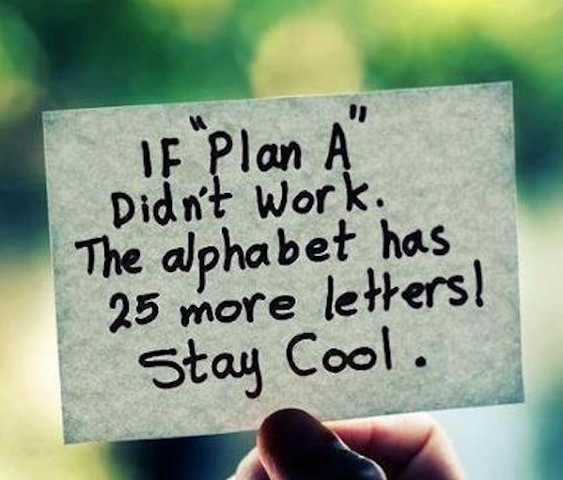 IF "Plan A"
Didn't Work.
The alphabet has
25 more letters!
Stay Cool .